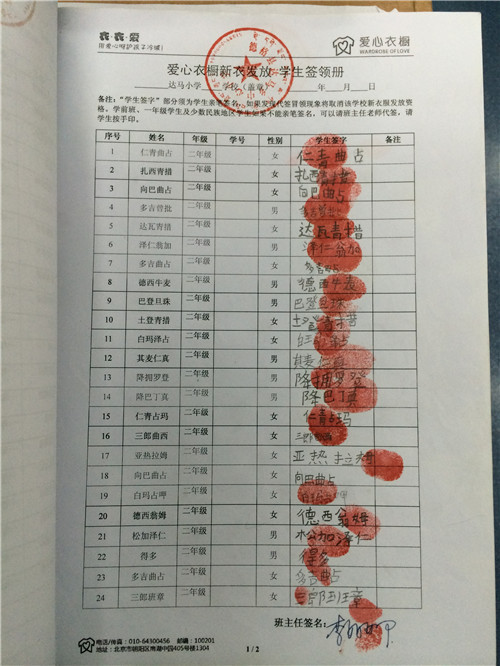 衣·衣·爱
用爱心呵护孩子冷暖!
爱心衣橱
WARDROBE OF LOVE
爱心衣橱新衣发放 学生签领册
达马小学 学校（盖章） 年 月 日
备注：“学生签字”部分须为学生亲笔签名，如果发现代签冒领现象将取消该学校新衣服发放资
格。学前班、一年级学生及少数民族地区学生如果不能亲笔签名，可以请班主任老师代签，请学
生按手印。
序号 姓名 年级 学号 性别 学生签字 备注
1 仁青曲占 二年级 女 仁青曲占
2 扎西青措 二年级 女 扎西青措
3 向巴曲占 二年级 女 向巴曲占
4 多吉晋批 二年级 男 多吉晋批
5 达瓦青措 二年级 女 达瓦青措
6 泽仁翁加 二年级 男 泽仁翁加
7 多吉曲占 二年级 女 多吉曲占
8 德西牛麦 二年级 男 德西牛麦
9 巴登旦珠 二年级 男 巴登旦珠
10 土登青措 二年级 女 土登青措
11 白玛泽占 二年级 女
12 其麦仁真 二年级 男 其麦仁真
13 降拥罗登 二年级 男 降拥罗登
14 降巴丁真 二年级 男 降巴丁真
15 仁青占玛 二年级 女 仁青占玛
16 三郎曲西 二年级 女 三郎
17 亚热拉姆 二年级 女 亚热拉姆
18 向巴曲占 二年级 女 向巴曲占
19 白玛占呷 二年级 女
20 德西翁姆 二年级 女 德西翁姆
21 松加泽仁 二年级 男 松加泽仁
22 得多 二年级 男 得多
23 多吉曲占 二年级 女 多吉曲占
24 三郎班章 二年级 女 三郎班章
班主任签名：
电话/传真：010-64300456 邮编：100201
地址：北京市朝阳区南湖中园405号楼1304
1 / 2